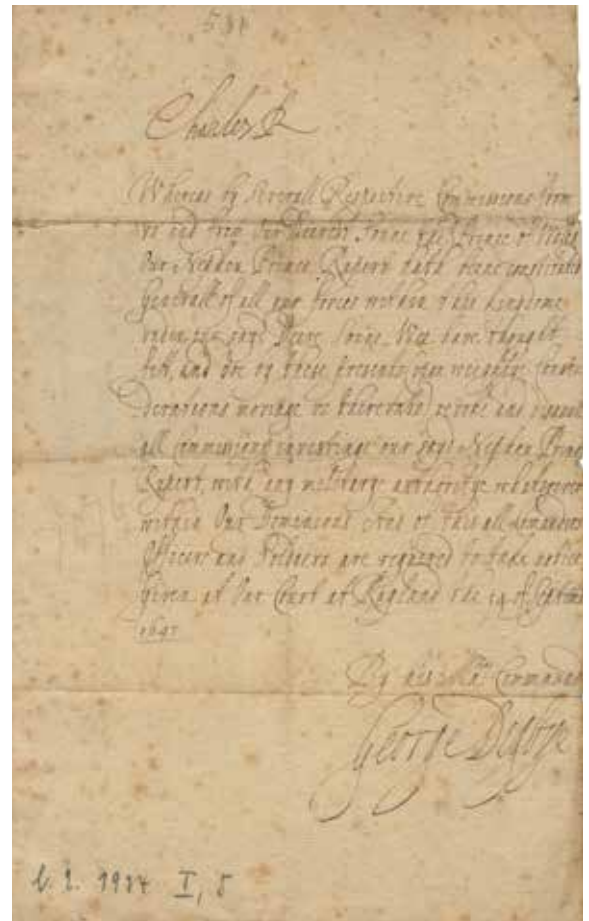 Charles R
Whereas by severall Respective Commissions from
us and from Our Dearest Sonne the Prince of Wales
Our Nephew Prince Rupert hath beene constituted
Generall of all our forces within this kingdome
under our sayd Deere Sonne, Wee have thought
fitt, and doe by these presents upon weighty Consi-
derations moving us thereunto, revoke and
all Commissions our sayd Nephew Prince
Rupert, with any military authority whatsoever
within Our Dominions And of this all Commanders
Officers and Soldiers are required to take notice
Given at Our Court at Ragland the 14 of September
1645
By his Ma Command
George Digbye
1937 I, 5